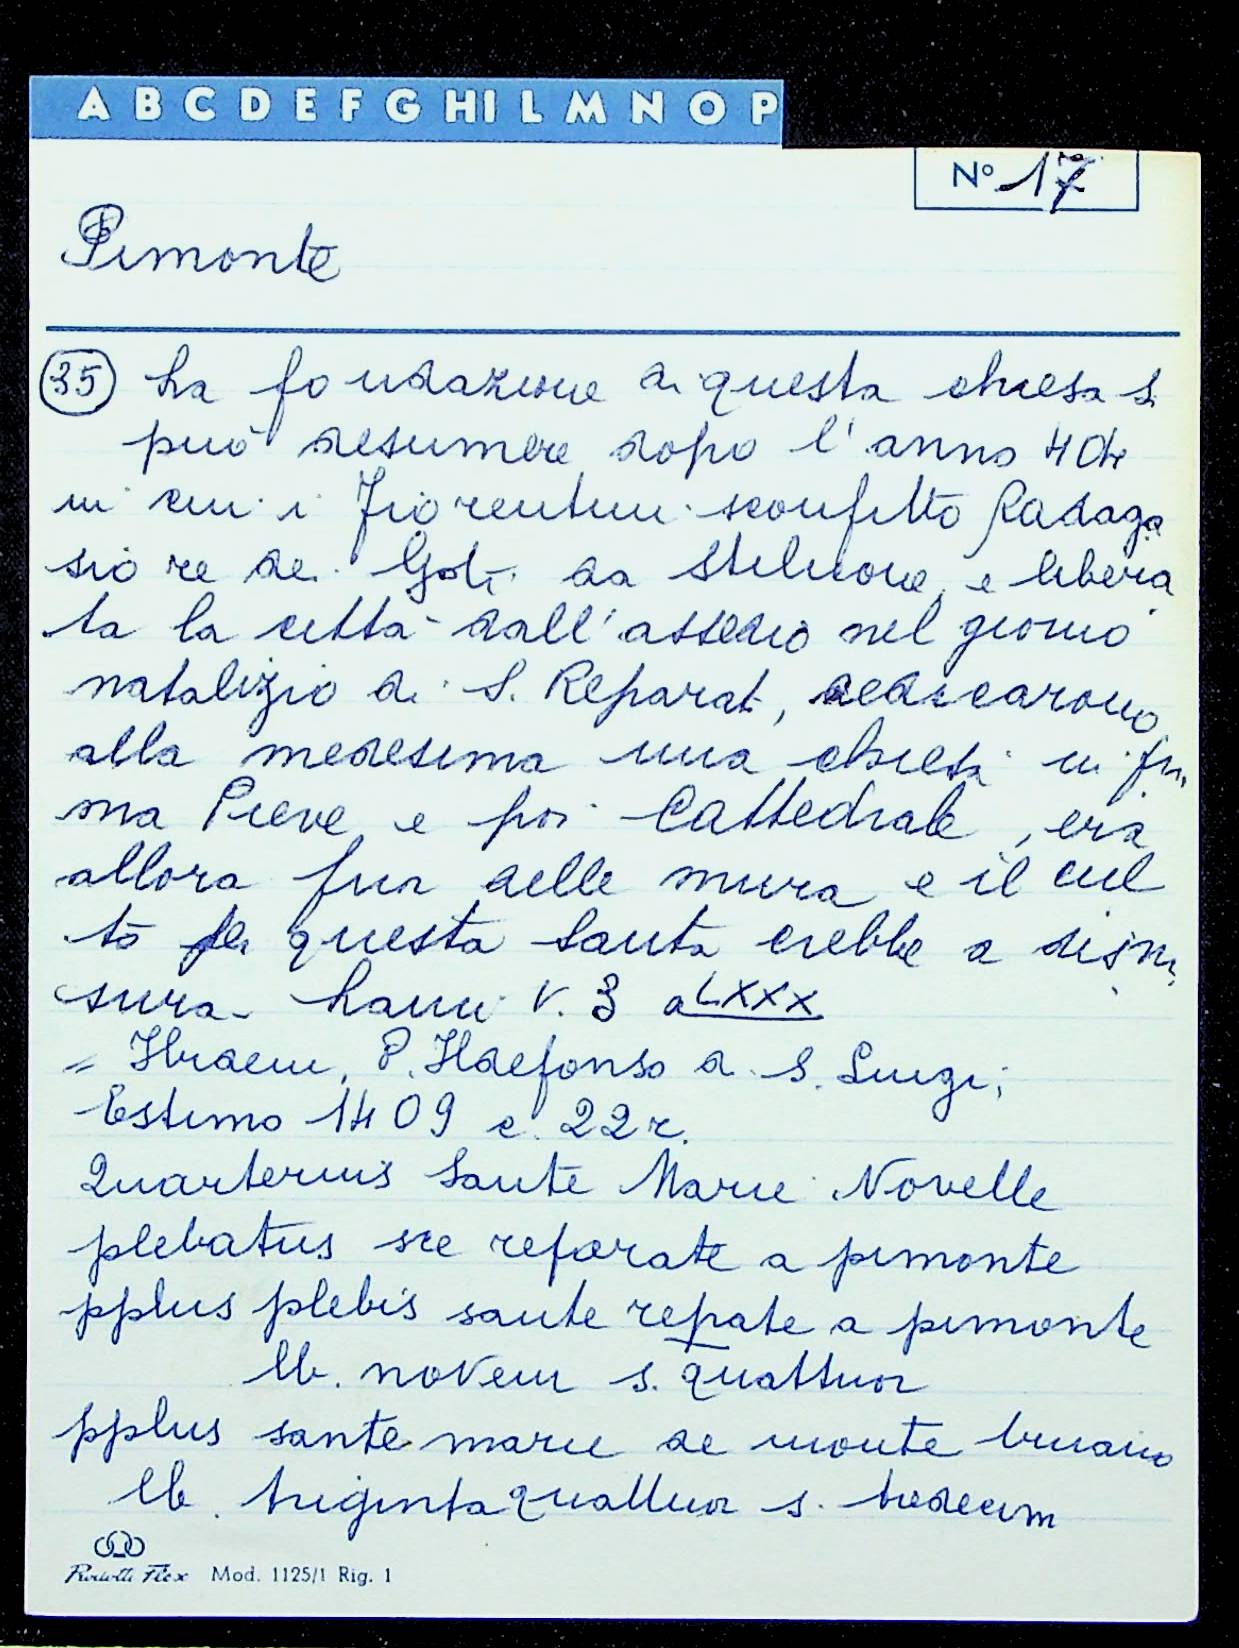 A B C D E F G HI L M N O P
Nº 17
Pimonte
35 La fondazione di questa chiesa si
può desumere dopo l'anno 404
in cui i Fiorentini sconfitto Radaga
sio re dei Goti da Stilicone, e libera
ta la città dall'assedio nel giorno
natalizio di S. Reparat, dedicarono
alla medesima una chiesa in pri
ma Pieve, e poi Cattedrale, era
allora fuor delle mura e il cul
to di questa Santa crebbe a dismi
sura. Lami V. 3 a LXXX
= P. Ildefonso di S. Luigi;
Estimo 1409 c. 22 r.
Quarterius Sante Marie Novelle
plebatus sce reparate a pimonte
pplus plebis sante repate a pimonte
lb. novem s. quattuor
pplus sante marie de monte
lb. triginta quattuor s. tredecim
Flex Mod. 1125/1 Rig. 1